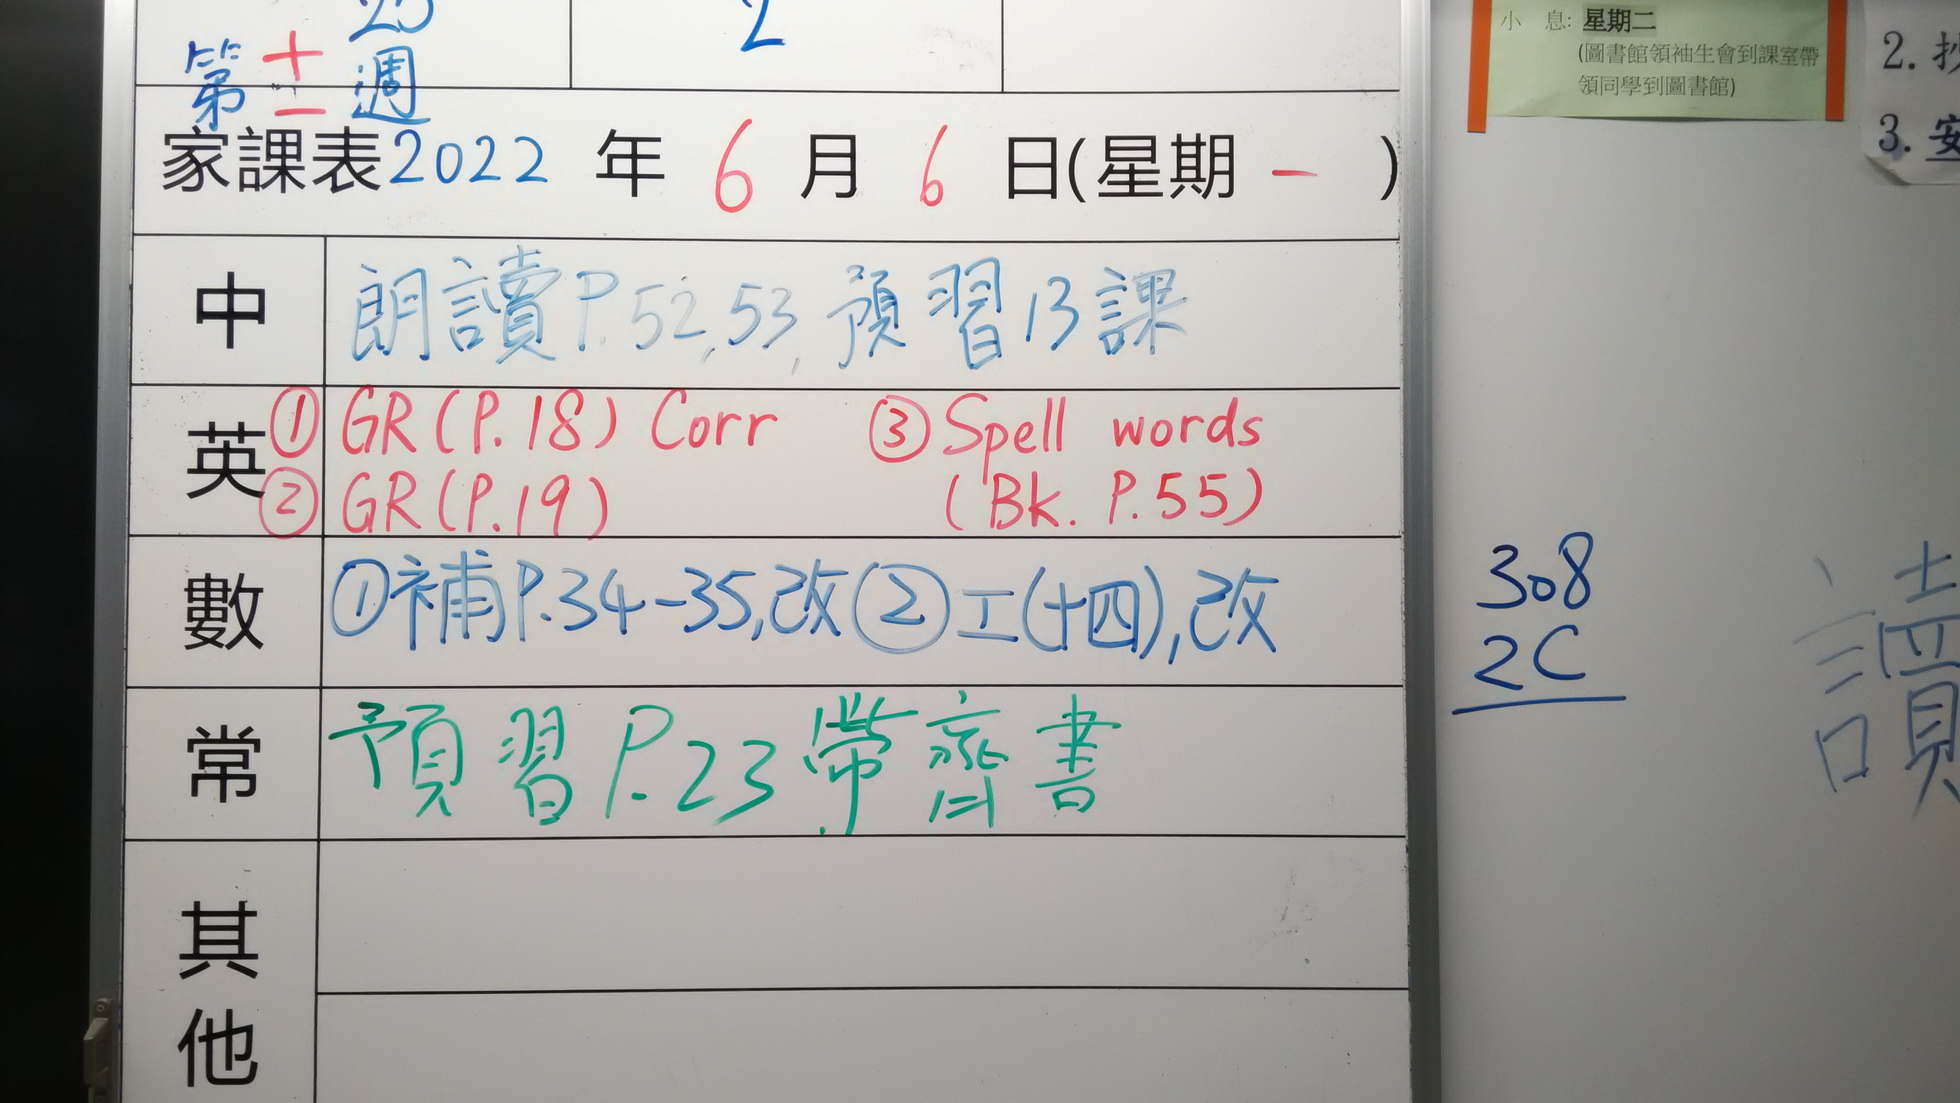 25
2
第十一週
家課表2022年6月6日(星期一)
中
朗讀P.52,53,預習13課
英
① GR(P.18) Corr
② GR(P.19)
③ Spell words
(Bk. P.55)
數
①補P.34-35,改②工(十四),改
常
預習P.23帶齊書
其他
小 息: 星期二
(圖書館領袖生會到課室帶
領同學到圖書館)
2. 抄
3. 安
308
2C
讀